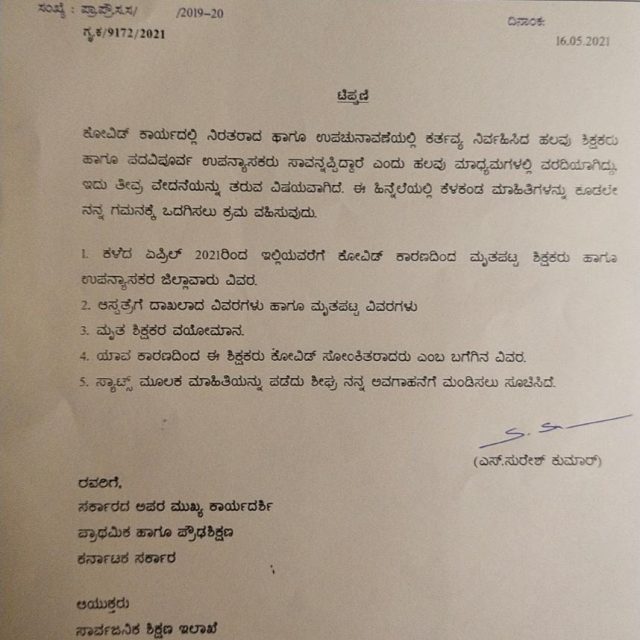 ಸಂಖ್ಯೆ : ಪ್ರಾಪ್ರೌಸ.ಸ/ /2019-20
ದಿನಾಂಕ:
ಗೃ.ಕ/9172/2021
16.05.2021
ಟಿಪ್ಪಣಿ
ಕೋವಿಡ್ ಕಾರ್ಯದಲ್ಲಿ ನಿರತರಾದ ಹಾಗೂ ಉಪಚುನಾವಣೆಯಲ್ಲಿ ಕರ್ತವ್ಯ ನಿರ್ವಹಿಸಿದ ಹಲವು ಶಿಕ್ಷಕರು
ಹಾಗೂ ಪದವಿಪೂರ್ವ ಉಪನ್ಯಾಸಕರು ಸಾವನ್ನಪ್ಪಿದ್ದಾರೆ ಎಂದು ಹಲವು ಮಾಧ್ಯಮಗಳಲ್ಲಿ ವರದಿಯಾಗಿದ್ದು,
ಇದು ತೀವ್ರ ವೇದನೆಯನ್ನು ತರುವ ವಿಷಯವಾಗಿದೆ. ಈ ಹಿನ್ನೆಲೆಯಲ್ಲಿ ಕೆಳಕಂಡ ಮಾಹಿತಿಗಳನ್ನು ಕೂಡಲೇ
ನನ್ನ ಗಮನಕ್ಕೆ ಒದಗಿಸಲು ಕ್ರಮ ವಹಿಸುವುದು.
1. ಕಳೆದ ಏಪ್ರಿಲ್ 2021ರಿಂದ ಇಲ್ಲಿಯವರೆಗೆ ಕೋವಿಡ್ ಕಾರಣದಿಂದ ಮೃತಪಟ್ಟ ಶಿಕ್ಷಕರು ಹಾಗೂ
ಉಪನ್ಯಾಸಕರ ಜಿಲ್ಲಾವಾರು ವಿವರ.
2. ಆಸ್ಪತ್ರೆಗೆ ದಾಖಲಾದ ವಿವರಗಳು ಹಾಗೂ ಮೃತಪಟ್ಟ ವಿವರಗಳು
3. ಮೃತ ಶಿಕ್ಷಕರ ವಯೋಮಾನ.
4. ಯಾವ ಕಾರಣದಿಂದ ಈ ಶಿಕ್ಷಕರು ಕೋವಿಡ್ ಸೋಂಕಿತರಾದರು ಎಂಬ ಬಗೆಗಿನ ವಿವರ.
5. ಸ್ಯಾಟ್ಸ್ ಮೂಲಕ ಮಾಹಿತಿಯನ್ನು ಪಡೆದು ಶೀಘ್ರ ನನ್ನ ಅವಗಾಹನೆಗೆ ಮಂಡಿಸಲು ಸೂಚಿಸಿದೆ.
(ಎಸ್.ಸುರೇಶ್ ಕುಮಾರ್)
ರವರಿಗೆ,
ಸರ್ಕಾರದ ಅಪರ ಮುಖ್ಯ ಕಾರ್ಯದರ್ಶಿ
ಪ್ರಾಥಮಿಕ ಹಾಗೂ ಪ್ರೌಢಶಿಕ್ಷಣ
ಕರ್ನಾಟಕ ಸರ್ಕಾರ
ಆಯುಕ್ತರು
ಸಾರ್ವಜನಿಕ ಶಿಕ್ಷಣ ಇಲಾಖೆ